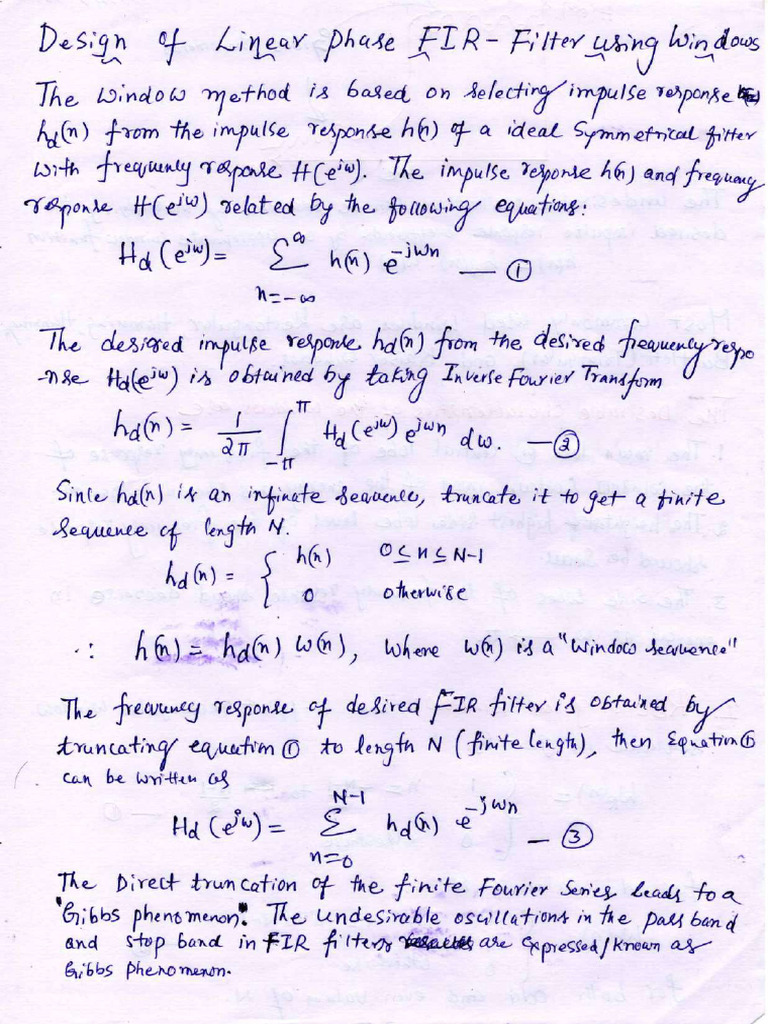 Design of Linear phase FIR - Filter using Windows
The window method is based on selecting impulse response
hd(n) from the impulse response h(n) of a ideal Symmetrical filter
with frequency response H(e^jω). The impulse response h(n) and frequency
response H(e^jω) related by the following equations:
Hd(e^jω) = Σ_{n=-∞}^{∞} h(n) e^{-jωn} — ①
The desired impulse response hd(n) from the desired frequency respo
-nse Hd(e^jω) is obtained by taking Inverse Fourier Transform
hd(n) = 1/2π ∫_{-π}^{π} Hd(e^jω) e^{jωn} dω. — ②
Since hd(n) is an infinate sequence, truncate it to get a finite
sequence of length N.
hd(n) = { h(n) 0≤n≤N-1
0 otherwise
∴ h(n) = hd(n) ω(n), where ω(n) is a "window sequence"
The frequency response of desired FIR filter is obtained by
truncating equation ① to length N (finite length), then Equation ①
can be written as
Hd(e^jω) = Σ_{n=0}^{N-1} hd(n) e^{-jωn} — ③
The Direct truncation of the finite Fourier Series leads to a
"Gibbs phenomenon". The undesirable oscillations in the pass band
and stop band in FIR filters are expressed/known as
Gibbs Phenomenon.